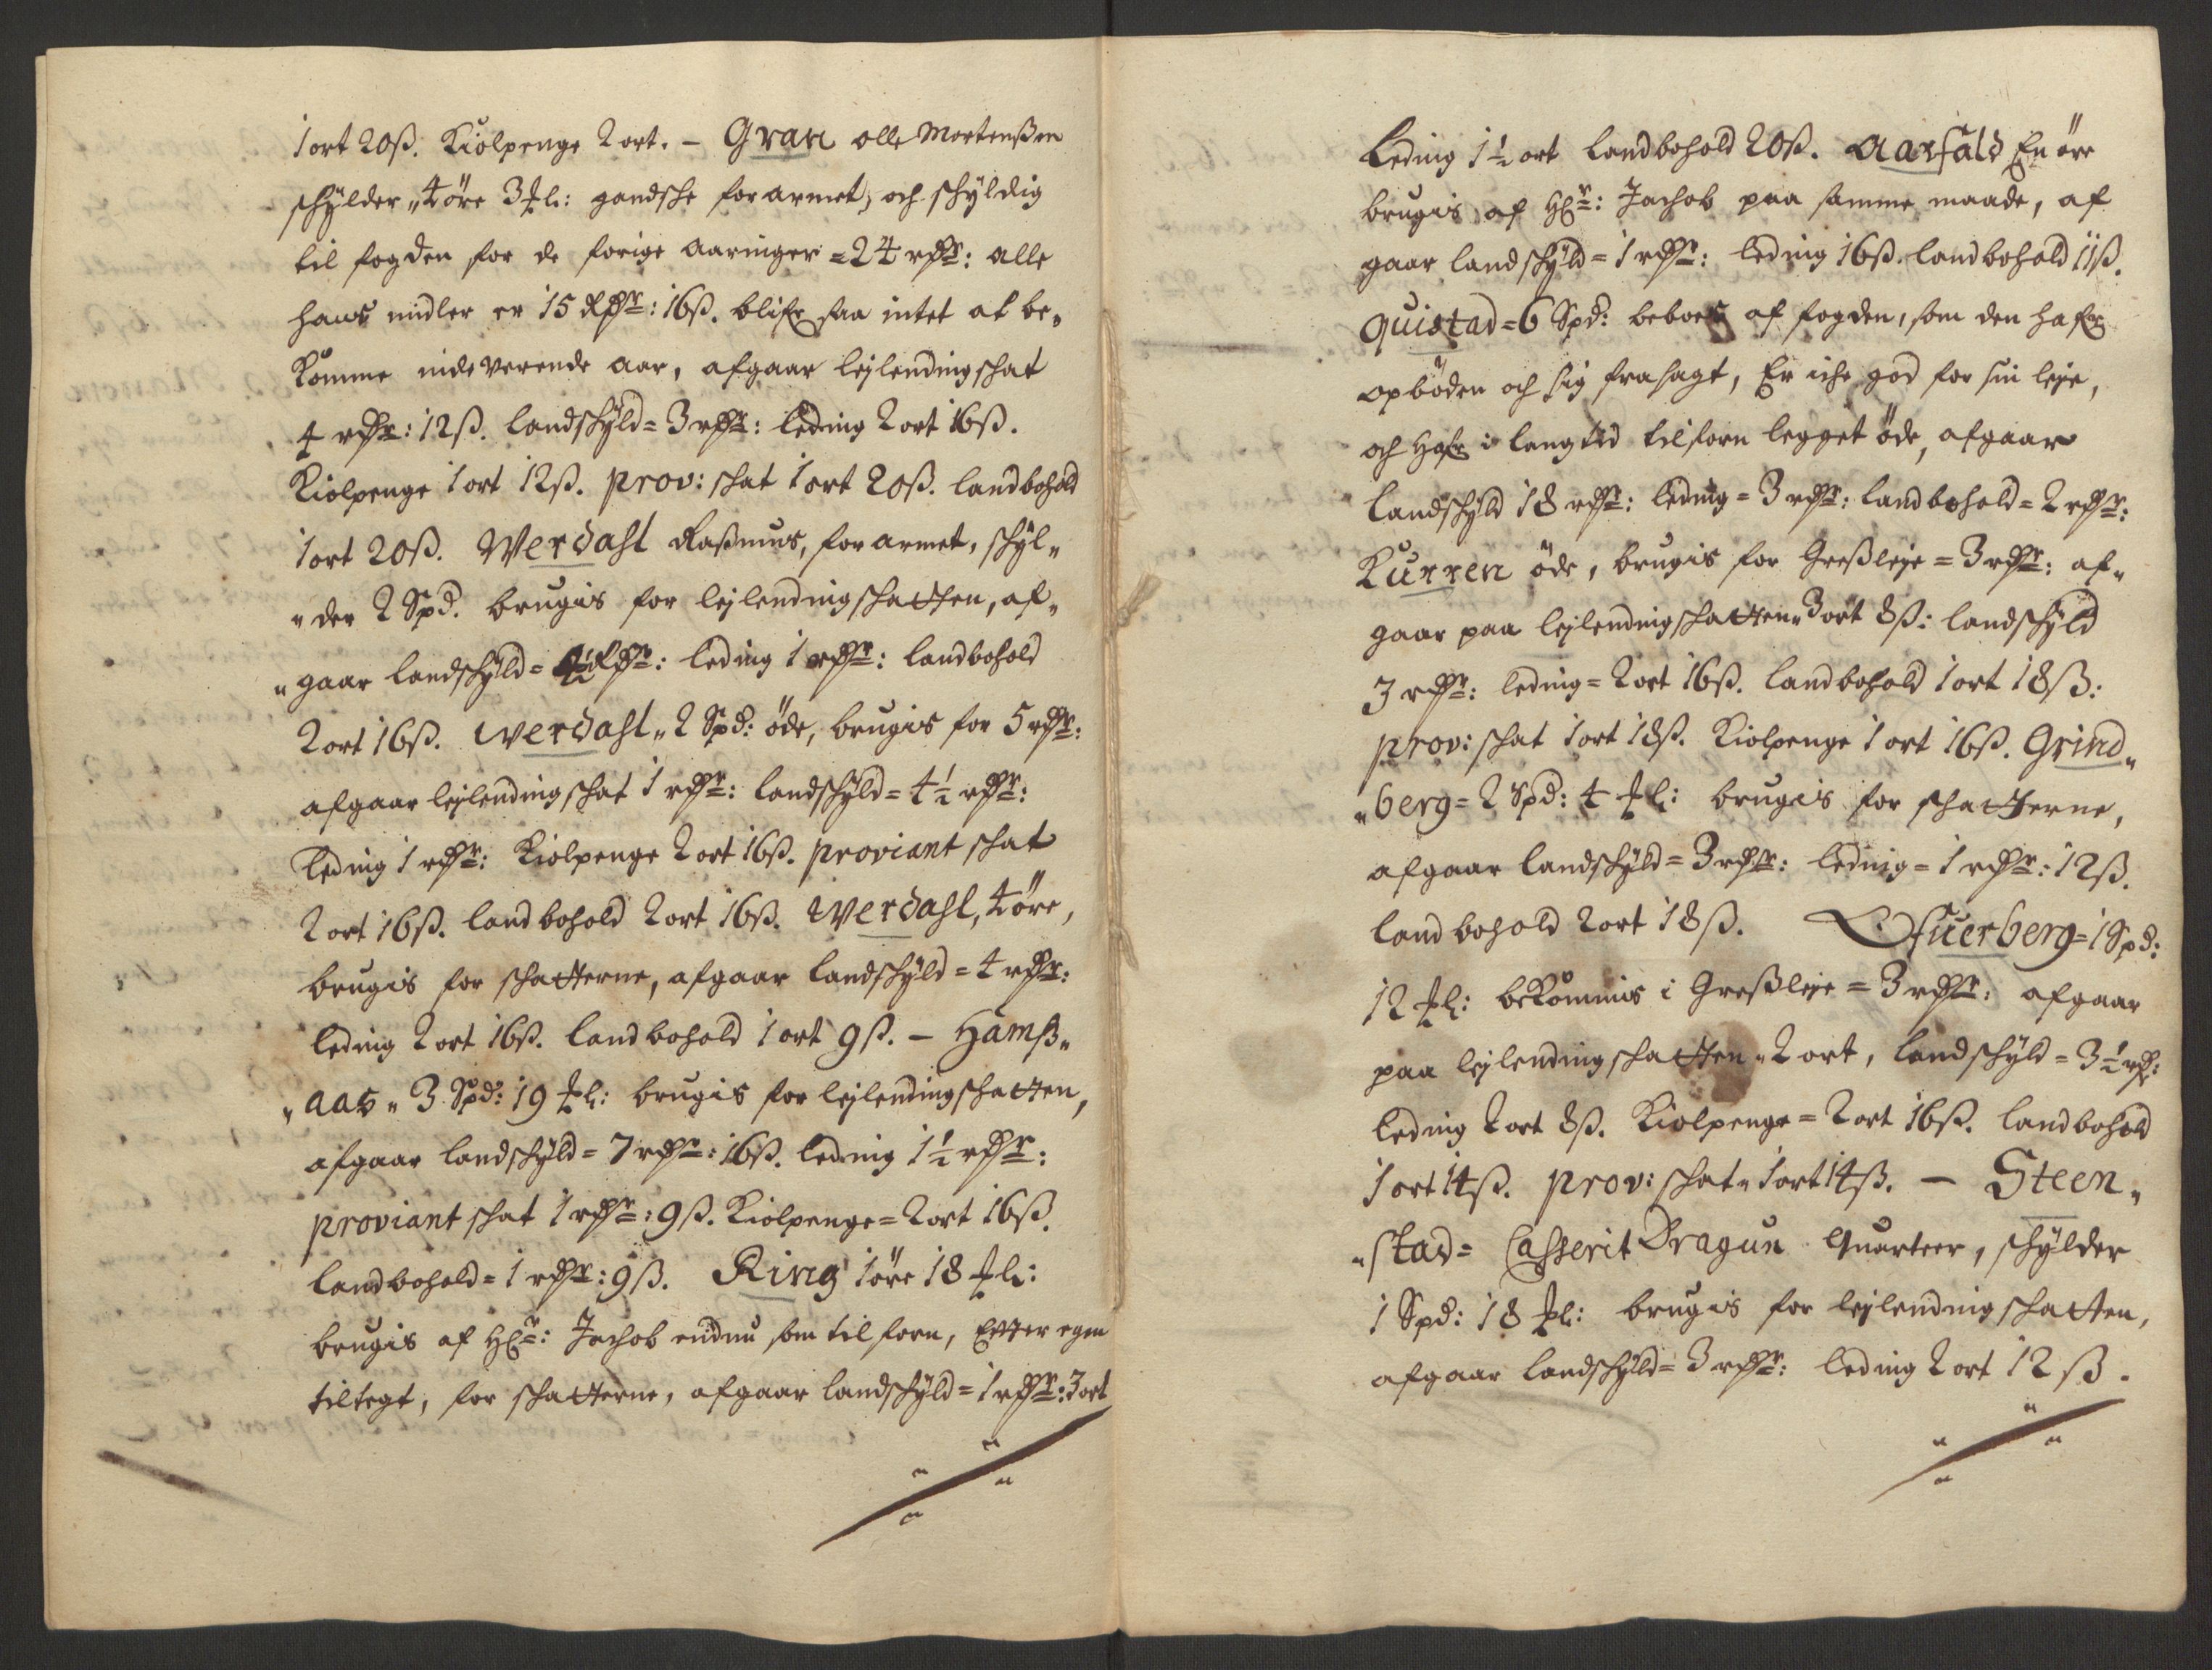 1 ort 20 ß. Kiolpenge 2 ort. – Gran olle Mortenßen
schÿlder „ 4 öre 3 ₶l: gandsche forarmet, och schÿldig
til fogden for de forige aaringer = 24 rdr: alle
hans midler er 15 Rdr: 16 ß. blifr saa intet at be„
komme indeverende aar, afgaar leylendingschat
4 rdr: 12 ß. landschÿld = 3 rdr: leding 2 ort 16 ß.
Kiolpenge 1 ort 12 ß. prov: schat 1 ort 20 ß. landbohold
1 ort 20 ß. Werdahl Raßmus, forarmet, schÿl„
„der 2 Spd. brugis for leylendingschatten, af„
„gaar landschÿld = 4½ Rdr: leding 1 rdr: landbohold
2 ort 16 ß. Werdahl „ 2 Spd: öde, brugis for 5 rdr:
afgaar leylendingschat 1 rdr: landschÿld = 4½ rdr:
leding 1 rdr: Kiolpenge 2 ort 16 ß. proviant schat
2 ort 16 ß. landbohold 2 ort 16 ß. Werdahl, 4 öre,
brugis for schatterne, afgaar landschÿld = 4 rdr:
leding 2 ort 16 ß. landbohold 1 ort 9 ß. – Hamß„
„aas „ 3 Spd: 19 ₶l: brugis for leylendingschatten,
afgaar landschÿld = 7 rdr: 16 ß. leding 1½ rdr:
proviant schat 1 rdr: 9 ß. Kiolpenge = 2 ort 16 ß.
landbohold = 1 rdr: 9 ß. Ring 1 öre 18 ₶l:
brugis af Hr: Jachob endnu som tilforn, Efter egen
tiltegt, for schatterne, afgaar landschÿld = 1 rdr: 3 ort
Leding 1½ ort landbohold 20 ß. Aarfald En öre
brugis af Hr: Jachob paa samme maade, af
gaar landschÿld = 1 rdr: leding 16 ß. landbohold 11 ß.
Quistad = 6 Spd: beboes af fogden, som den hafr
opböden och sig frasagt, Er iche god for sin leye,
och hafr i lang tid tilforn legget öde, afgaar
landschÿld 18 rdr: leding = 3 rdr: landbohold = 2 rdr:
Kurren öde, brugis for Greßleye = 3 rdr: af„
gaar paa leylendingschatten „ 3 ort 8 ß: landschÿld
3 rdr: leding = 2 ort 16 ß. landbohold 1 ort 18 ß:
prov: schat 1 ort 18 ß. Kiolpenge 1 ort 16 ß. Grind„
„berg = 2 Spd: 4 ₶l: brugis for schatterne,
afgaar landschÿld = 3 rdr: leding = 1 rdr: 12 ß.
landbohold 2 ort 18 ß. Ofuerberg = 1 Spd:
12 ₶l: bekommis i Greßleye = 3 rdr: afgaar
paa leylendingschatten „ 2 ort, landschÿld = 3½ rdr:
leding 2 ort 8 ß. Kiolpenge = 2 ort 16 ß. landbohold
1 ort 14 ß. prov: schat „ 1 ort 14 ß. – Steen„
„stad = Casserit Dragun Quarteer, schÿlder
1 Spd: 18 ₶l: brugis for leylendingschatten,
afgaar landschÿld = 3 rdr: leding 2 ort 12 ß.